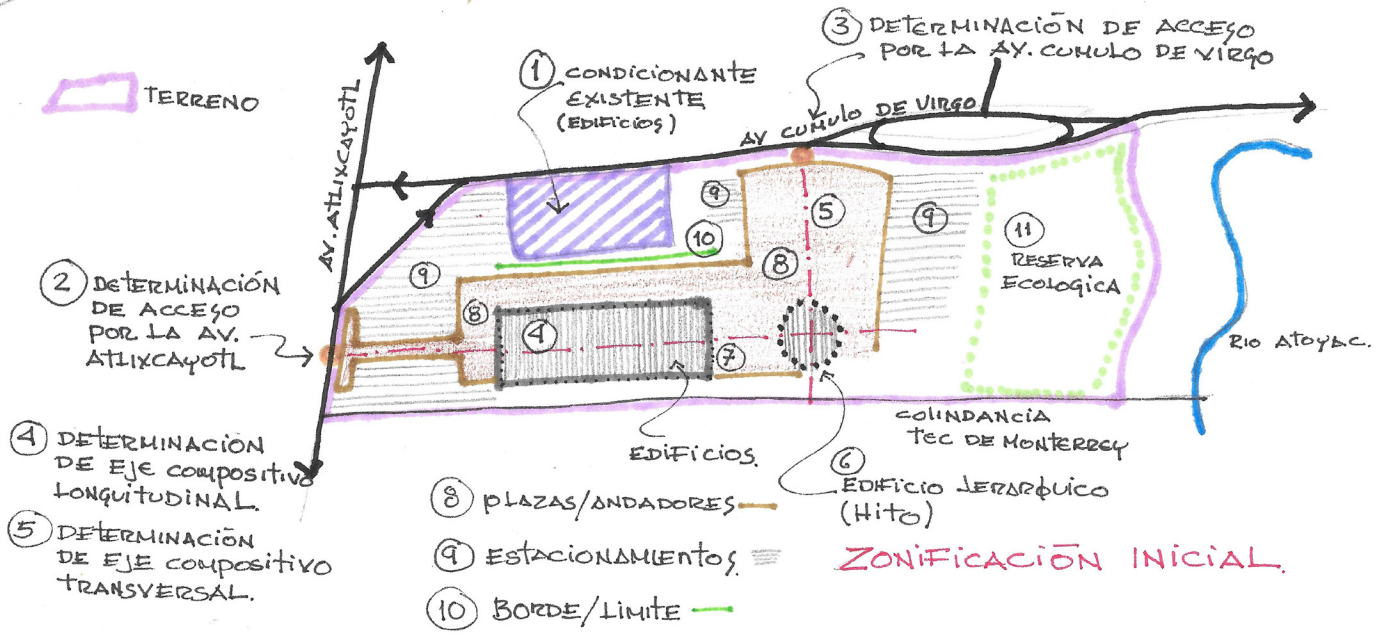 TERRENO
AV. ATLIXCAYOTL
1 CONDICIONANTE
EXISTENTE
(EDIFICIOS)
3 DETERMINACIÓN DE ACCESO
POR LA AV. CUMULO DE VIRGO
AV CUMULO DE VIRGO
2 DETERMINACIÓN
DE ACCESO
POR LA AV.
ATLIXCAYOTL
9
9
5
9
10
8
11
RESERVA
ECOLOGICA
8
4
7
RIO ATOYAC.
COLINDANCIA
TEC DE MONTERREY
4 DETERMINACIÓN
DE EJE COMPOSITIVO
LONGUITUDINAL.
5 DETERMINACIÓN
DE EJE COMPOSITIVO
TRANSVERSAL.
EDIFICIOS.
6
EDIFICIO JERARQUICO
(HITO)
8 PLAZAS/ANDADORES
9 ESTACIONAMIENTOS
10 BORDE/LIMITE
ZONIFICACIÓN INICIAL.